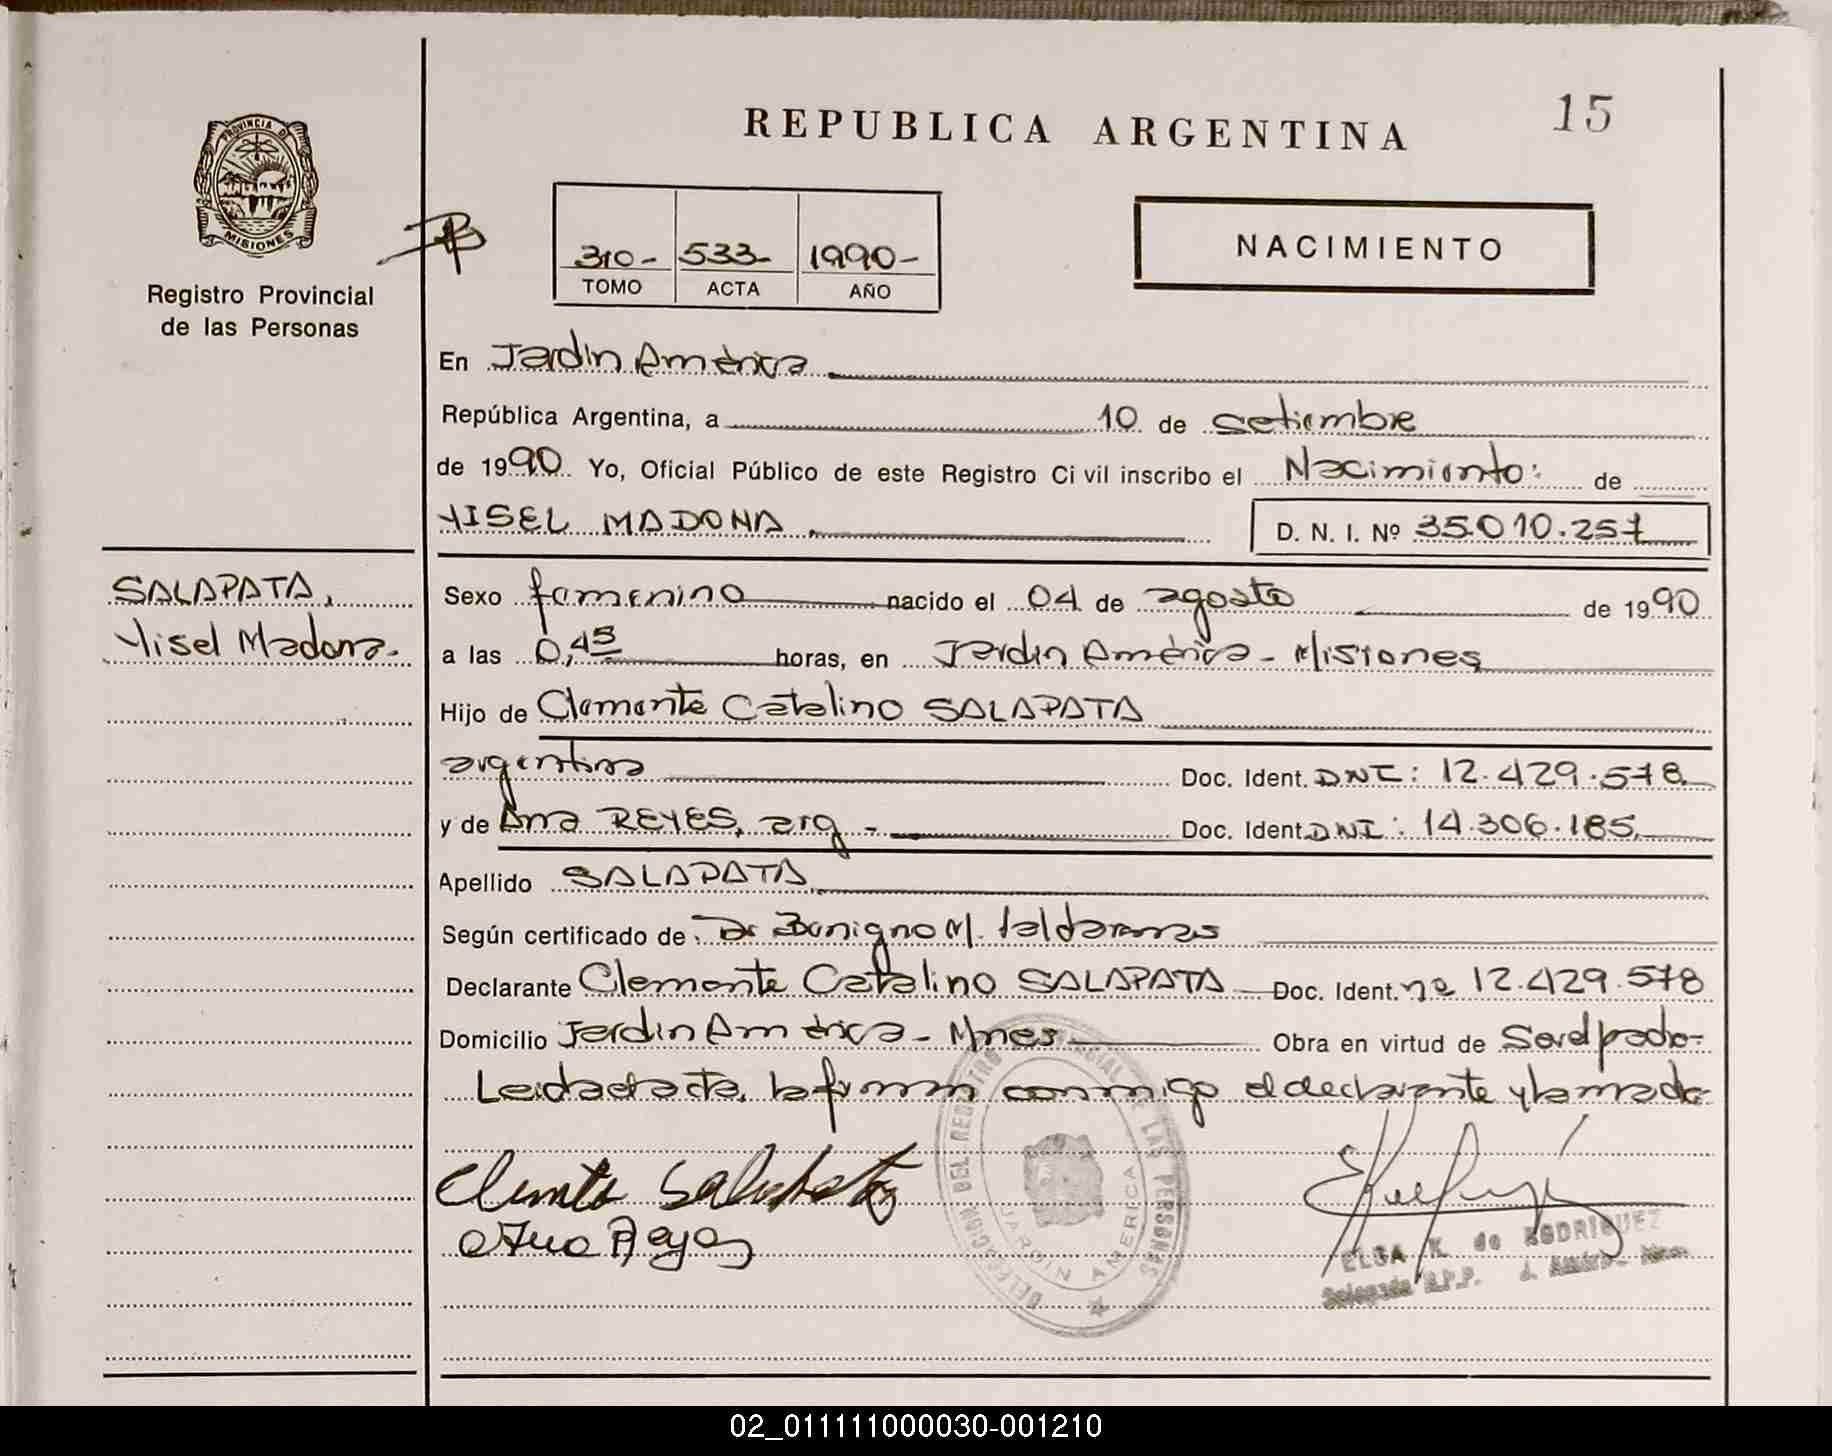 REPUBLICA ARGENTINA
15
PROVINCIA DE MISIONES
Registro Provincial
de las Personas
310- 533- 1990-
TOMO ACTA AÑO
NACIMIENTO
En Jardín América
República Argentina, a 10 de setiembre
de 1990 Yo, Oficial Público de este Registro Civil inscribo el Nacimiento: de
YISEL MADONA D. N. I. Nº 35.010.257
SALAPATA,
Yisel Madona.
Sexo femenino nacido el 04 de agosto de 1990
a las 0,45 horas, en Jardín América - Misiones
Hijo de Clemente Catalino SALAPATA
argentina Doc. Ident. DNI: 12.429.578
y de Ana REYES, arg - Doc. Ident. DNI: 14.306.185
Apellido SALAPATA
Según certificado de Dr Benigno M.
Declarante Clemente Catalino SALAPATA Doc. Ident. nº 12.429.578
Domicilio Jardín América - Mnes Obra en virtud de Ser el padre-
Leida el acta, la firman conmigo el declarante y la madre
Ana Reyes
DELEGACION DEL REGISTRO PROVINCIAL DE LAS PERSONAS
JARDIN AMERICA
ELSA K. de RODRIGUEZ
Delegada R.P.P. J. América - Mnes
02_011111000030-001210